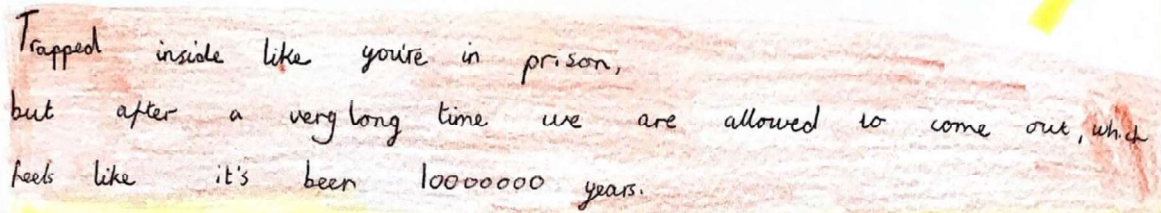 Trapped inside like you're in prison,
but after a very long time we are allowed to come out, which
feels like it's been 10000000 years.